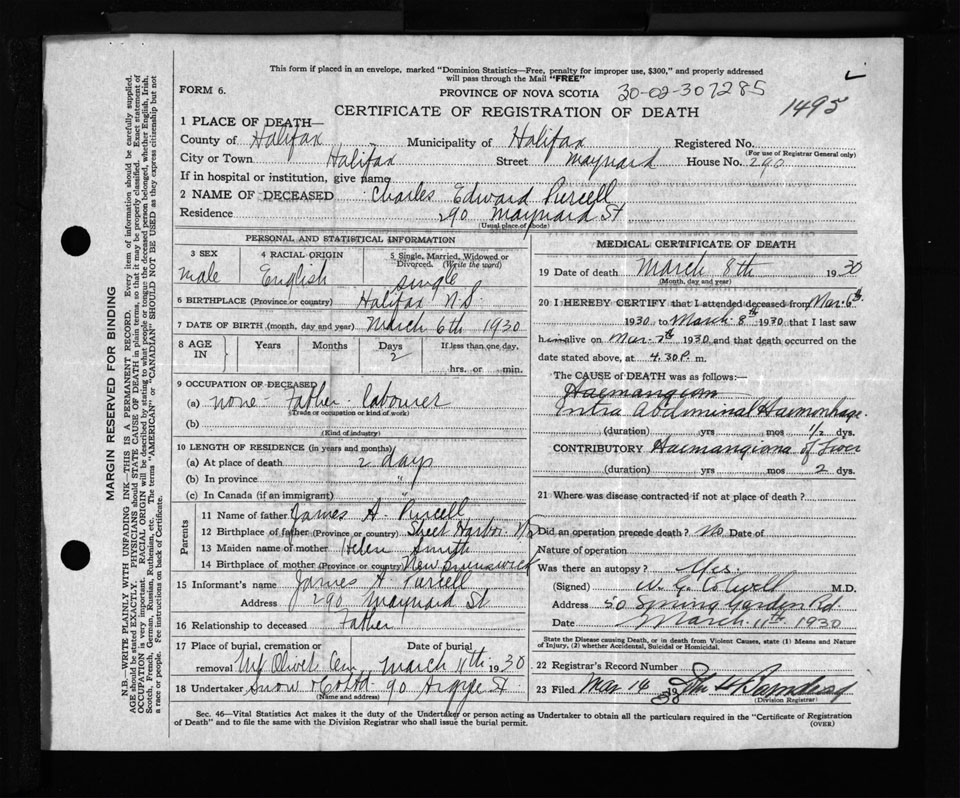 This form if placed in an envelope, marked "Dominion Statistics—Free, penalty for improper use, $300," and properly addressed
will pass through the Mail "FREE"
FORM 6.
PROVINCE OF NOVA SCOTIA 30-02-307285
CERTIFICATE OF REGISTRATION OF DEATH 1495
1 PLACE OF DEATH—
County of Halifax Municipality of Halifax Registered No.
(For use of Registrar General only)
City or Town Halifax Street Maynard House No. 290
If in hospital or institution, give name
2 NAME OF DECEASED Charles Edward Purcell
Residence 290 Maynard St
(Usual place of abode)
PERSONAL AND STATISTICAL INFORMATION
3 SEX 4 RACIAL ORIGIN 5 Single, Married, Widowed or Divorced. (Write the word)
male English single
6 BIRTHPLACE (Province or country) Halifax N.S.
7 DATE OF BIRTH (month, day and year) March 6th 1930
8 AGE IN Years Months Days If less than one day.
2
hrs. or min.
9 OCCUPATION OF DECEASED
(a) none - Father Labourer
(Trade or occupation or kind of work)
(b)
(Kind of industry)
10 LENGTH OF RESIDENCE (in years and months)
(a) At place of death 2 days
(b) In province "
(c) In Canada (if an immigrant) "
Parents
11 Name of father James A. Purcell
12 Birthplace of father (Province or country) Sheet Harbor. N.S
13 Maiden name of mother Helen Smith
14 Birthplace of mother (Province or country) New Brunswick
15 Informant's name James A Purcell
Address 290 Maynard St
16 Relationship to deceased Father
17 Place of burial, cremation or removal Mt Olivet Cem
Date of burial March 11th 1930
18 Undertaker Snow & Co Ltd. 90 Argyle St
(Name and address)
MEDICAL CERTIFICATE OF DEATH
19 Date of death March 8th 1930
(Month, day and year)
20 I HEREBY CERTIFY that I attended deceased from Mar. 6th.
1930 to March. 8th 1930 that I last saw
him alive on Mar. 7th 1930 and that death occurred on the
date stated above, at 4.30 P. m.
The CAUSE OF DEATH was as follows:—
Haemangiom
Intra Abdominal Haemorrhage.
(duration) yrs mos 1/2 dys.
CONTRIBUTORY Haemangioma of Liver
(duration) yrs mos 2 dys.
21 Where was disease contracted if not at place of death?
Did an operation precede death? No Date of
Nature of operation
Was there an autopsy? Yes.
(Signed) W. G. Colwell M.D.
Address 50 Spring Garden Rd.
Date March. 11th. 1930
State the Disease causing Death, or in death from Violent Causes, state (1) Means and Nature
of Injury, (2) whether Accidental, Suicidal or Homicidal.
22 Registrar's Record Number
23 Filed Mar 14
(Division Registrar)
Sec. 46—Vital Statistics Act makes it the duty of the Undertaker or person acting as Undertaker to obtain all the particulars required in the "Certificate of Registration
of Death" and to file the same with the Division Registrar who shall issue the burial permit.
(OVER)
MARGIN RESERVED FOR BINDING
N.B.—WRITE PLAINLY WITH UNFADING INK—THIS IS A PERMANENT RECORD. Every item of information should be carefully supplied.
AGE should be stated EXACTLY. PHYSICIANS should STATE CAUSE OF DEATH in plain terms, so that it may be properly classified. Exact statement of
OCCUPATION is very important. RACIAL ORIGIN will be described by stating to what people or tongue the deceased person belonged, whether English, Irish,
Scotch, French, German, Russian, Ruthenian, etc. The terms "AMERICAN" or "CANADIAN" SHOULD NOT BE USED as they express citizenship but not
a race or people. See instructions on back of Certificate.